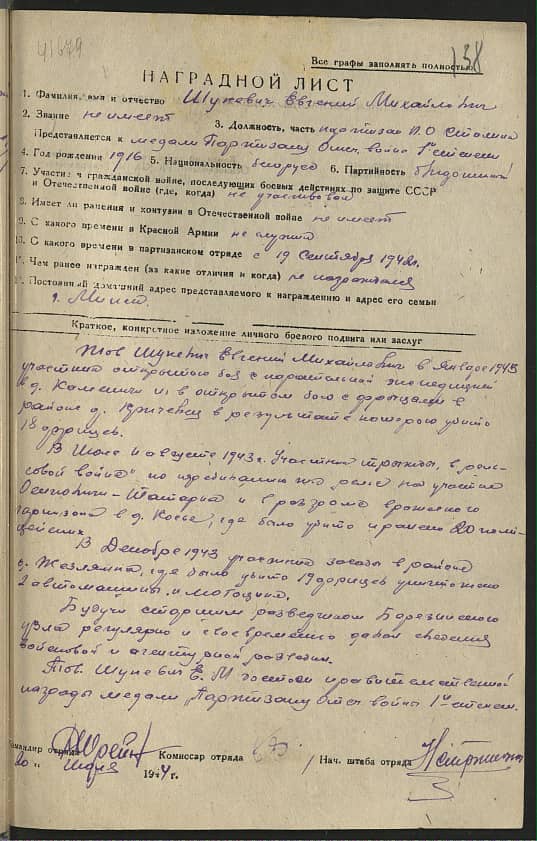 41679
138
Все графы заполнять полностью
НАГРАДНОЙ ЛИСТ
1. Фамилия, имя и отчество Шуневич Евгений Михайлович
2. Звание не имеет 3. Должность, часть партизан П.О Сталина
Представляется к медали Партизану Отеч. войны 1й степени
4. Год рождения 1916 5. Национальность беларус 6. Партийность
7. Участие в гражданской войне, последующих боевых действиях по защите СССР
и Отечественной войне (где, когда) не участвовал
8. Имеет ли ранения и контузии в Отечественной войне не имеет
9. С какого времени в Красной Армии не служил
10. С какого времени в партизанском отряде с 19 Сентября 1942г.
11. Чем ранее награжден (за какие отличия и когда) не награждался
12. Постоянный домашний адрес представляемого к награждению и адрес его семьи
г. Минск.
Краткое, конкретное изложение личного боевого подвига или заслуг
Тов Шуневич Евгений Михайлович в Январе 1943
участник открытого боя с карательной экспедицией
в д. и в открытом бою с фрицами в
районе д. Кричевец в результате которого убито
18 фрицев.
В Июле и августе 1943 г. Участник трижды, в „рель-
совой войне" по рельс на участке
Осиповичи – Татарка и в разгроме вражеского
гарнизона в д. где было убито и ранено 20 поли-
цейских
В Декабре 1943 участник засады в районе
д. где было убито 19 фрицев уничтожено
2 автомашины и мотоцикл.
Будучи старшим разведчиком Березинского
узла регулярно и своевременно давал сведения
войсковой и агентурной разведки.
Тов. Шуневич Е. М достоин правительственной
награды медали „Партизану Отеч войны 1й степени.
Командир отряда Комиссар отряда Нач. штаба отряда
20 „ Июля 1944 г.